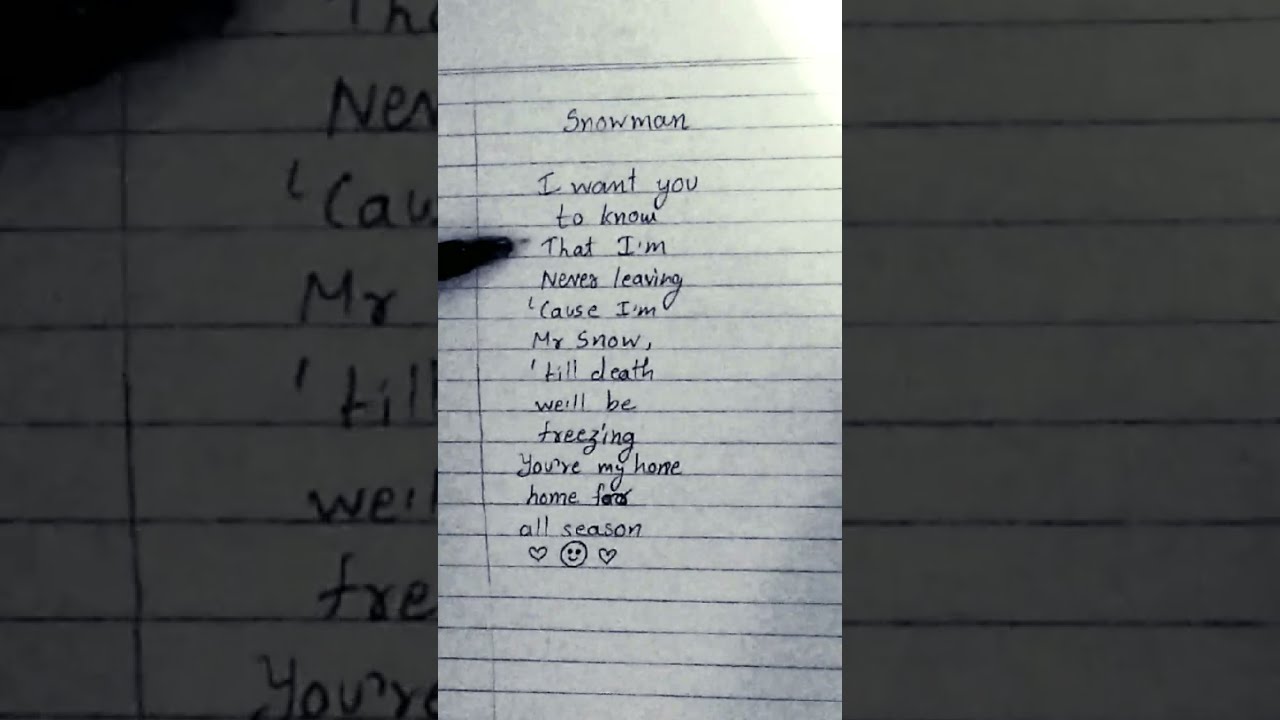 Snowman
I want you
to know
That I'm
Never leaving
'Cause I'm
Mr Snow,
'till death
we'll be
freezing
You're my home
home for
all season